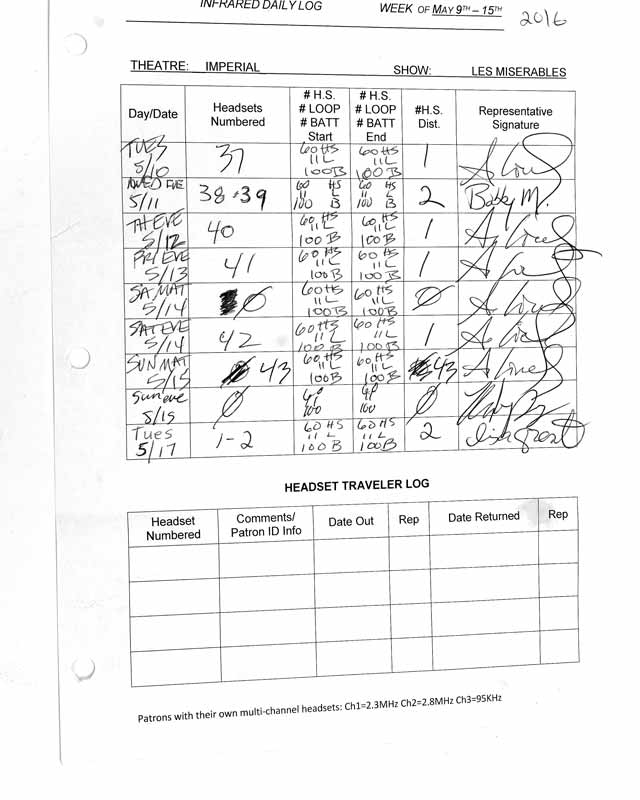 INFRARED DAILY LOG WEEK OF MAY 9TH – 15TH 2016
THEATRE: IMPERIAL SHOW: LES MISERABLES
Day/Date Headsets Numbered # H.S. # LOOP # BATT Start # H.S. # LOOP # BATT End #H.S. Dist. Representative Signature
TUES 5/10 37 60HS 11L 100B 60HS 11L 100B 1
WED EVE 5/11 38 + 39 60 HS 11 L 100 B 60 HS 11 L 100 B 2 Bobby M.
TH EVE 5/12 40 60 HS 11L 100 B 60 HS 11L 100 B 1
FRI EVE 5/13 41 60 HS 11L 100B 60 HS 11L 100B 1
SA MAT 5/14 Ø 60HS 11L 100B 60HS 11L 100B Ø
SAT EVE 5/14 42 60HS 11L 100B 60HS 11L 100B 1
SUN MAT 5/15 43 60HS 11L 100B 60HS 11L 100B 43
Sun eve 5/15 Ø 100 100 Ø
Tues 5/17 1-2 60HS 11 L 100B 60HS 11 L 100B 2 Lisa Grant
HEADSET TRAVELER LOG
Headset Numbered Comments/ Patron ID Info Date Out Rep Date Returned Rep
Patrons with their own multi-channel headsets: Ch1=2.3MHz Ch2=2.8MHz Ch3=95KHz